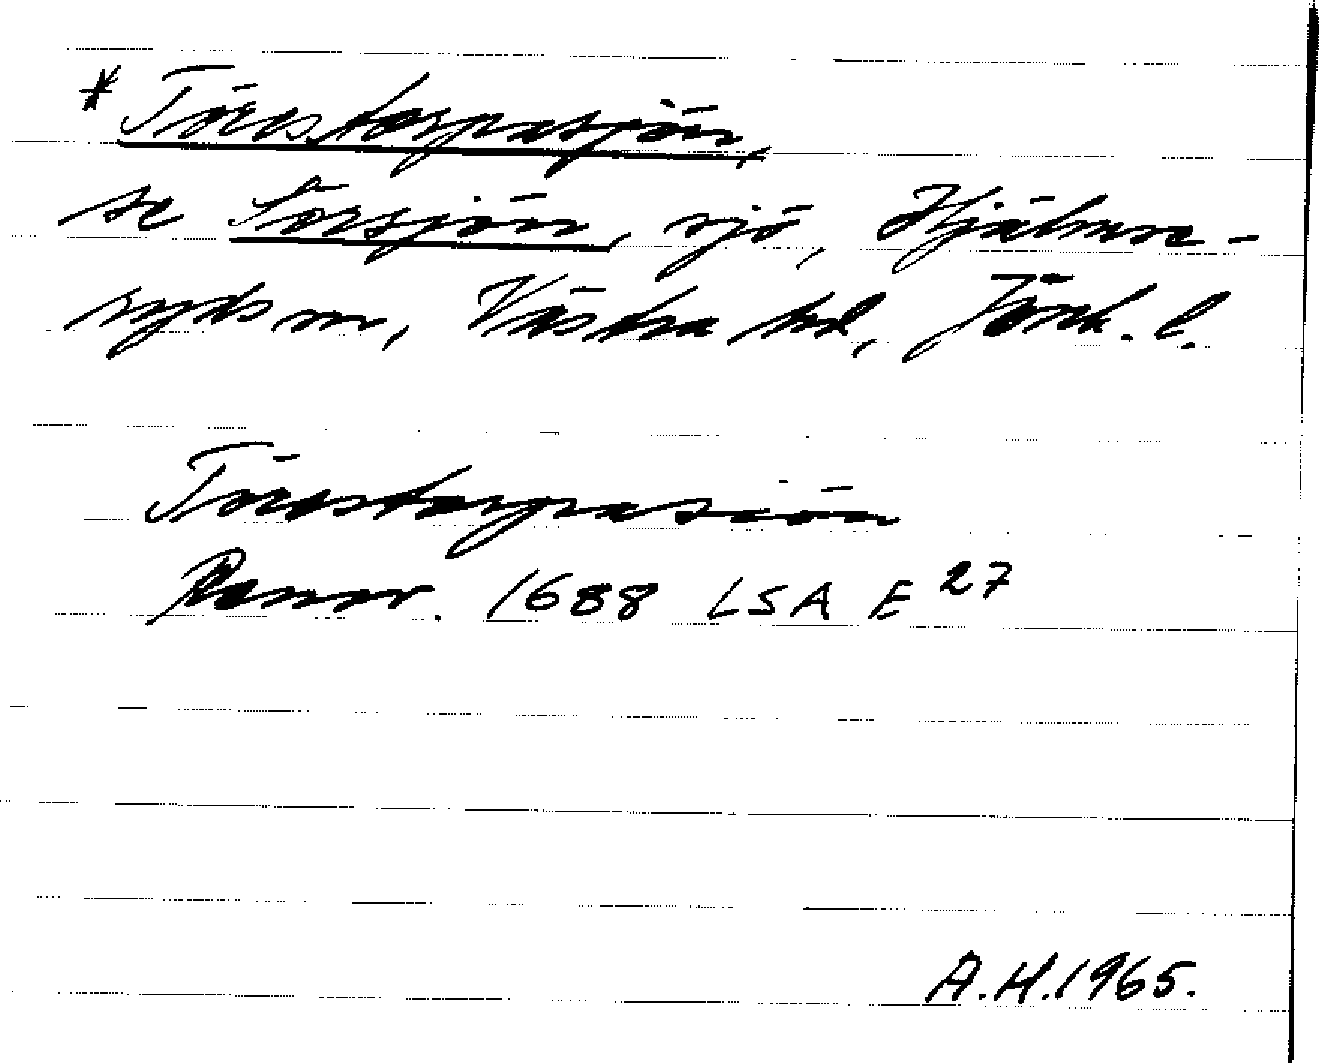 * Törestorpasjön,
se Sörsjön, sjö, Hjälmse-
ryds sn, Västra hd, Jönk. l.
Törestorpasiön
Renov. 1688 LSA E 27
A.H. 1965.